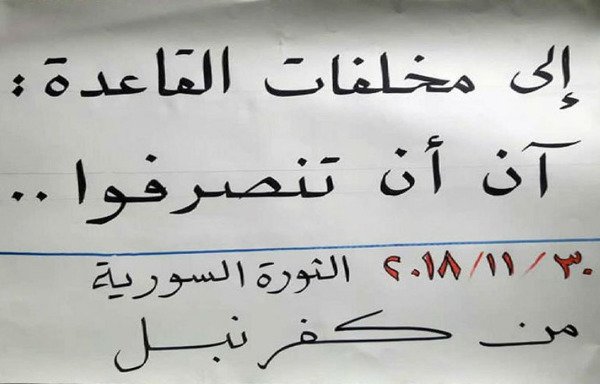 إلى مخلفات القاعدة :
آن أن تنصرفوا ..
٣٠ / ١١ / ٢٠١٨ الثورة السورية
من كفرنبل